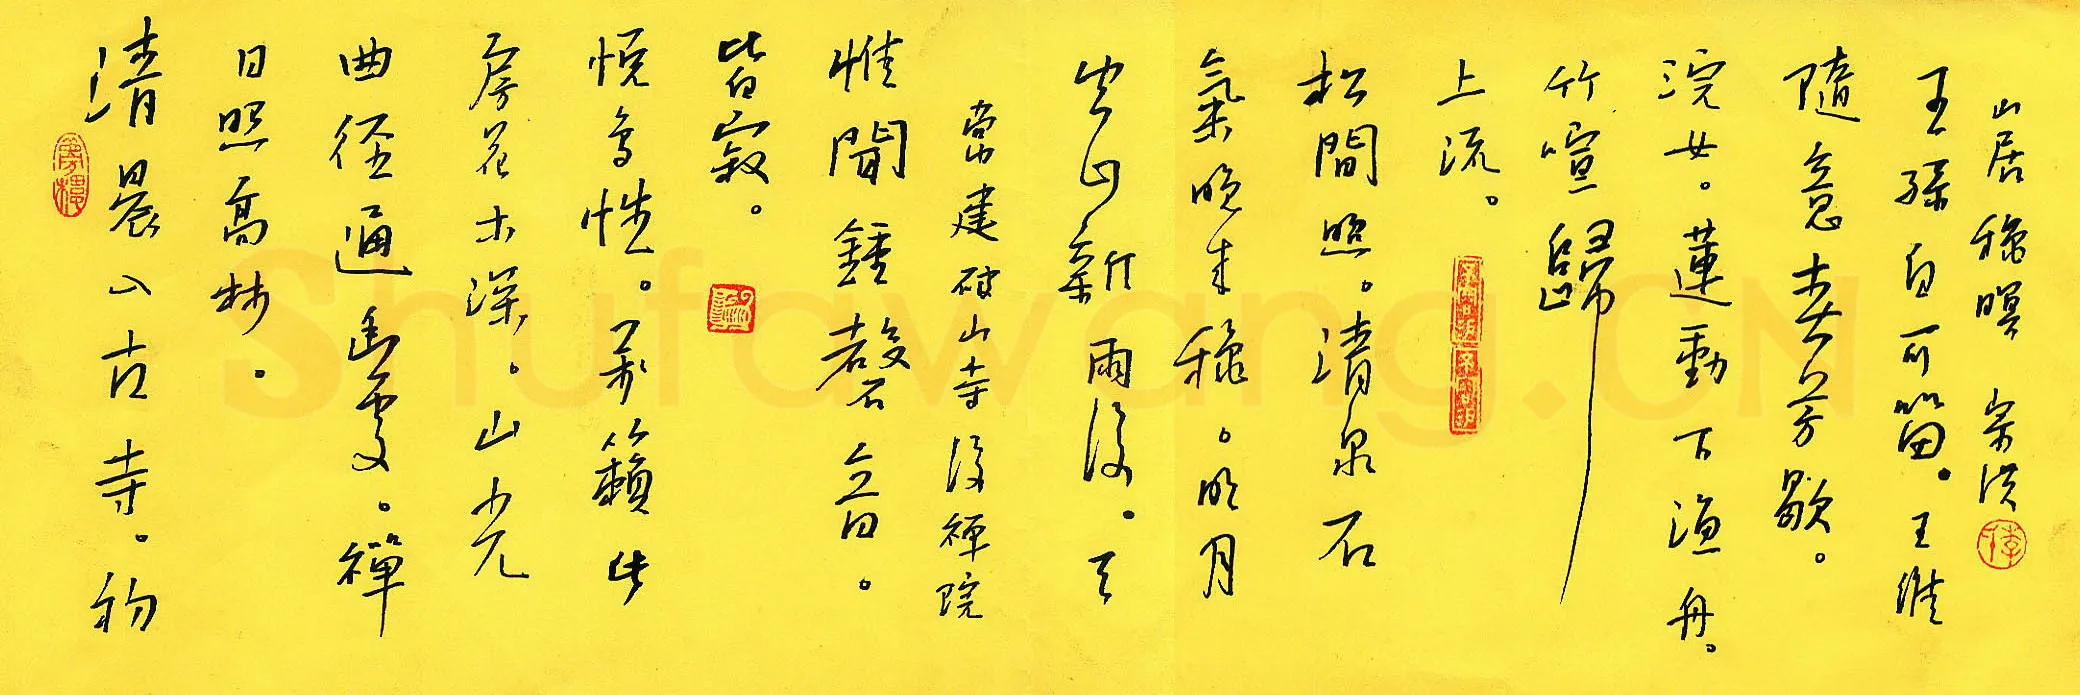 清晨入古寺。初
日照高林。
曲径通幽處。禪
房花木深。山光
悦鸟性。萬籟此
皆寂。
惟聞鍾磬音。
常建破山寺後禅院
空山新雨後。天
氣晚来穐。明月
松間照。清泉石
上流。
竹喧歸
浣女。蓮動下渔舟。
隨意春芳歇。
王孫自可留。王维
山居穐暝 宗洪
Shufawang.CN